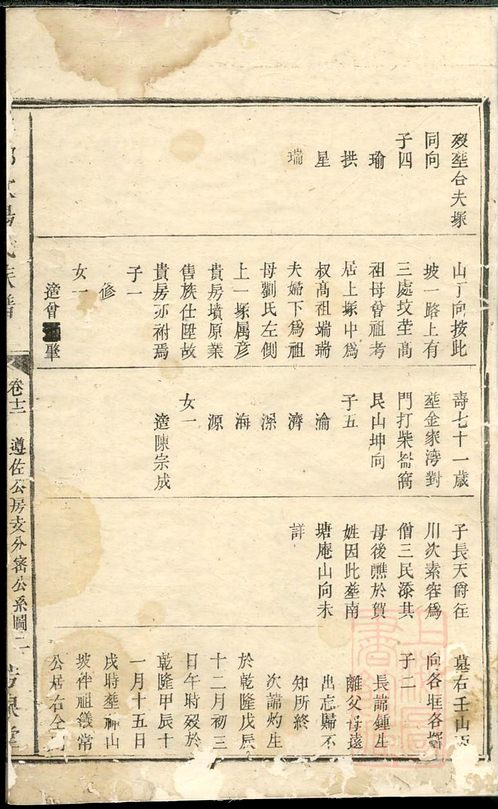 歿塟台夫塚
同向
子四
瑜
拱
星
瑞
山丁向按此
坡一路上有
三處坟塟高
祖母曾祖考
居上塚中爲
叔高祖端瑞
夫婦下爲祖
母劉氏左側
上一塚属彥
貴房墳原業
售族仕匪故
貴房亦祔焉
子一
修
女一
適曾 肇
壽七十一歲
塟金家湾對
門打柴崙窩
艮山坤向
子五
淪
濟
深
海
源
女一
適陳宗成
子長天爵往
川次素容爲
僧三民添其
母後醮於賀
姓因此塟南
塘庵山向未
詳
墓右壬山丙
向各堆各
子二
長諱鍾生
離父母遠
出忘歸不
知所終
次諱灼生
於乾隆戊辰
十二月初三
日午時歿於
乾隆甲辰十
一月十五日
戌時塟神山
坡伴祖嫨常
公居右仝
卷十二
遵佐公房支分密公系圖二